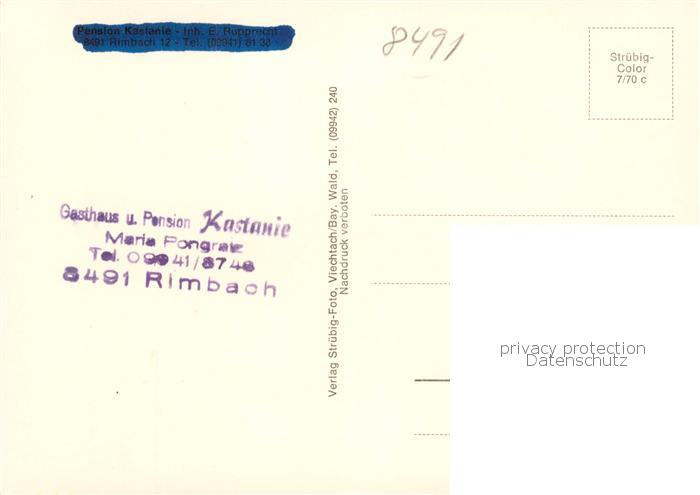 Pension Kastanie - Inh. E. Rupprecht
8491 Rimbach 12 - Tel. (09941) 81 38
8491
Strübig-
Color
7/70 c
Gasthaus u. Pension Kastanie
Maria Pongratz
Tel. 09941/8748
8491 Rimbach
Verlag Strübig-Foto, Viechtach/Bay. Wald, Tel. (09942) 240
Nachdruck verboten
privacy protection
Datenschutz